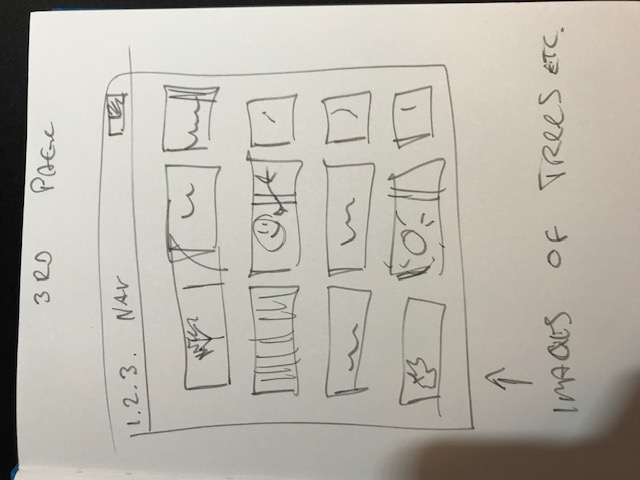 3RD PAGE
1.2.3. NAV
IMAGES OF TREES ETC.